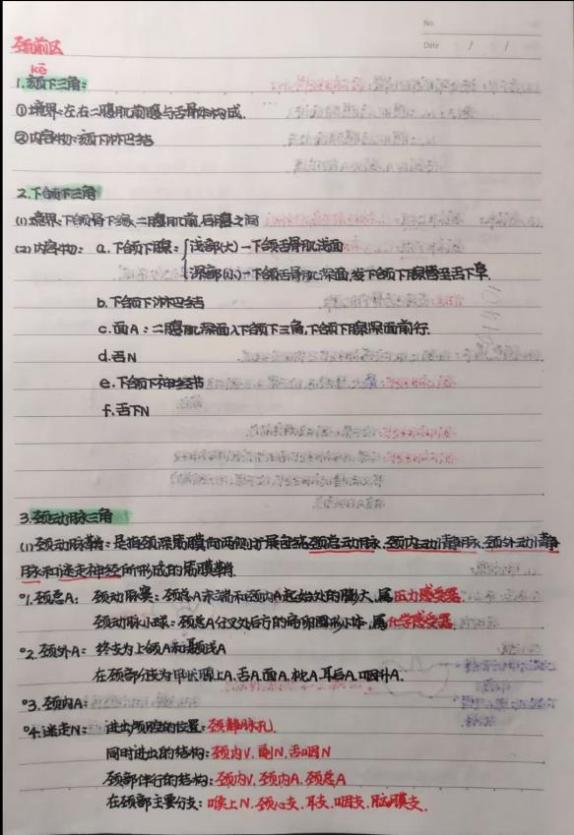 No.
Date / /
颈前区
kē
1.颏下三角:
①境界:左右二腹肌前腹与舌骨体构成.
②内容物:颏下淋巴结
2.下颌下三角
(1)境界:下颌骨下缘、二腹肌前、后腹之间
(2)内容物: a.下颌下腺: 浅部(大)—下颌舌骨肌浅面
深部(小)—下颌舌骨肌深面,发下颌下腺管至舌下阜.
b.下颌下淋巴结
c.面A:二腹肌深面入下颌下三角,下颌下腺深面前行.
d.舌N
e.下颌下神经节
f.舌下N
3.颈动脉三角
(1)颈动脉鞘:是指颈深筋膜向两侧扩展包绕颈总动脉、颈内动静脉、颈外动静
脉和迷走神经所形成的筋膜鞘.
°1.颈总A: 颈动脉窦:颈总A末端和颈内A起始处的膨大,属压力感受器.
颈动脉小球:颈总A分叉处后方的扁卵圆形小体,属化学感受器.
°2.颈外A: 终支为上颌A和颞浅A
在颈部分支为甲状腺上A.舌A.面A.枕A.耳后A.咽升A.
°3.颈内A:
°4.迷走N: 进出颅腔的位置:颈静脉孔.
同时进出的结构:颈内V.副N.舌咽N
颈部伴行的结构:颈内V.颈内A.颈总A
在颈部主要分支:喉上N.颈心支.耳支.咽支.脑膜支.